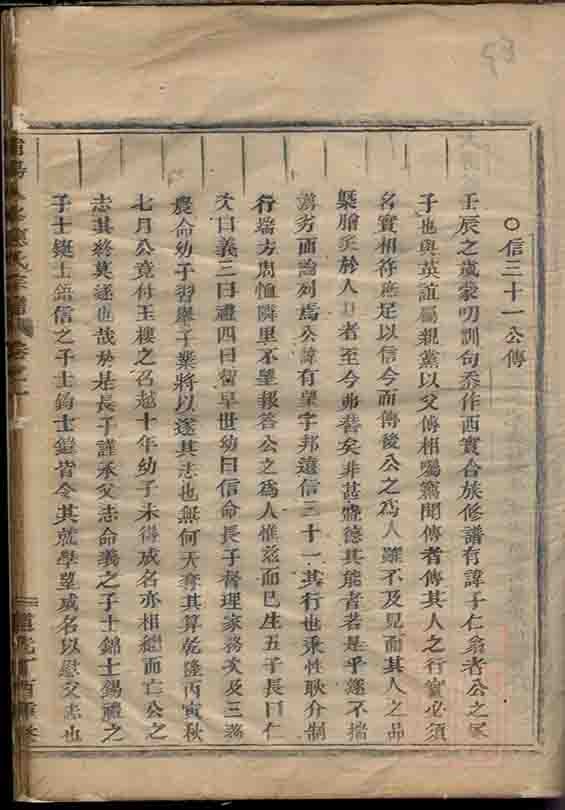 ○信三十一公傳
壬辰之歲蒙叨訓句忝作西賓合族修譜有諱子仁翁者公之冢
子也與英誼屬親黨以父傳相囑竊聞傳者傳其人之行實必須
名實相符應足以信今而傳後公之為人雖不及見而其人之品
槩膾炙於人口者至今弗替矣非甚盛德其能者若是乎遂不揣
謭劣而論列焉公諱有望字邦遠信三十一其行也秉性耿介制
行端方周恤隣里不望報答公之為人惟茲而已生五子長曰仁
次曰義三曰禮四曰智早世幼曰信命長子督理家務次及三認
農命幼子習舉子業將以遂其志也無何天奪其算乾隆丙寅秋
七月公竟付玉樓之召越十年幼子未得成名亦相繼而亡公之
志其終莫遂也哉於是長子謹承父志命義之子士錦士錫禮之
子士鋌士鋙信之子士鈞士鎧皆令其就學望成名以慰父志也
氏宗譜 卷之
道光丁酉重修